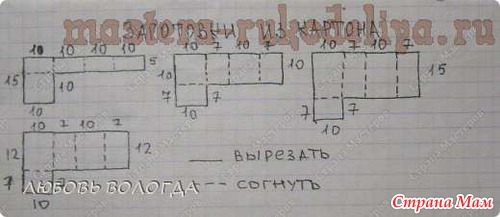 ЗАГОТОВКИ ИЗ КАРТОНА
masterа-rukodeliya.ru
10 10 10 10
5
15
10
10
10 7 10 7
10
10
7
7
10
10 7 10 7
15
7
7
10
10 7 10 7
12
12
7
7
10
___ ВЫРЕЗАТЬ
--- СОГНУТЬ
ЛЮБОВЬ ВОЛОГДА
Страна Мам